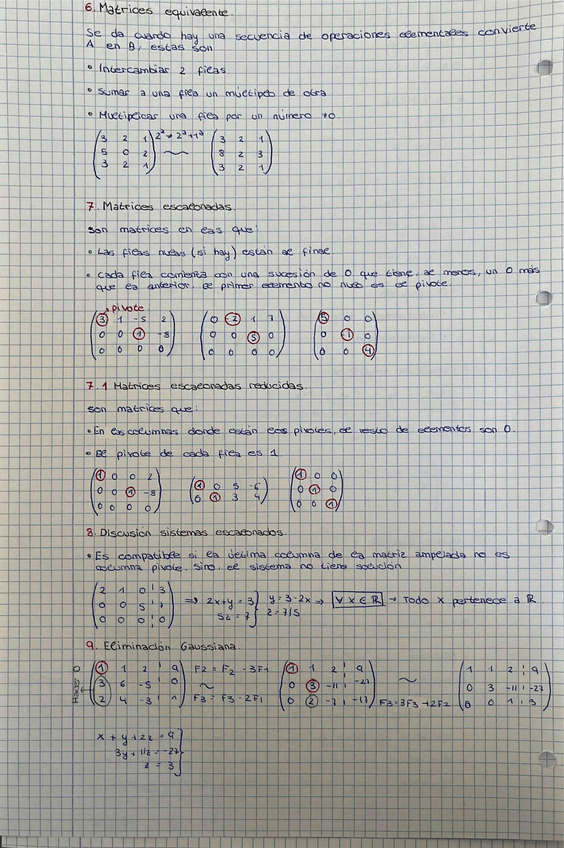 6. Matrices equivalente.
Se da cuando hay una secuencia de operaciones elementales convierte
A en B, estas son
• Intercambiar 2 filas
• Sumar a una fila un múltiplo de otra
• Multiplicar una fila por un número ≠0.
3 2 1 2ª→2ª+1ª 3 2 1
5 0 2 ~ 8 2 3
3 2 1 3 2 1
7. Matrices escalonadas.
Son matrices en las que:
• Las filas nulas (si hay) están al final
• Cada fila comienza con una sucesión de 0 que tiene, al menos, un 0 más
que la anterior. El primer elemento no nulo es el pivote.
pivote
3 1 -5 2 0 -2 1 7 5 0 0
0 0 1 -8 0 0 5 0 0 -1 0
0 0 0 0 0 0 0 0 0 0 4
7.1 Matrices escalonadas reducidas.
Son matrices que:
• En las columnas donde están los pivotes, el resto de elementos son 0.
• El pivote de cada fila es 1.
1 0 0 2 1 0 5 -6 1 0 0
0 0 1 -8 0 1 3 4 0 1 0
0 0 0 0 0 0 1
8. Discusión sistemas escalonados.
• Es compatible si la última columna de la matriz ampliada no es
columna pivote. Sino, el sistema no tiene solución
2 1 0 ¦ 3
0 0 5 ¦ 7 ⇒ 2x+y = 3 y = 3-2x ⇒ ∀ x ∈ ℝ → Todo x pertenece a ℝ
0 0 0 ¦ 0 5z = 7 z = 7/5
9. Eliminación Gaussiana.
1 1 2 ¦ 9 F2 = F2 - 3F1 1 1 2 ¦ 9 1 1 2 ¦ 9
3 6 -5 ¦ 0 ~ 0 3 -11 ¦ -27 ~ 0 3 -11 ¦ -27
2 4 -3 ¦ 1 F3 = F3 - 2F1 0 2 -7 ¦ -17 F3=3F3-2F2 0 0 1 ¦ 3
x + y + 2z = 9
3y + 11z = -27
z = 3